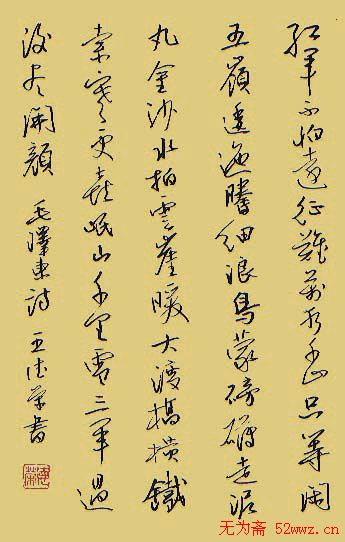 紅軍不怕遠征難萬水千山只等閑
五嶺逶迤騰細浪烏蒙磅礴走泥
丸金沙水拍雲崖暖大渡橋橫鐵
索寒更喜岷山千里雪三軍過
後盡開顏 毛澤東詩 王書
无为斋 52wwz.cn